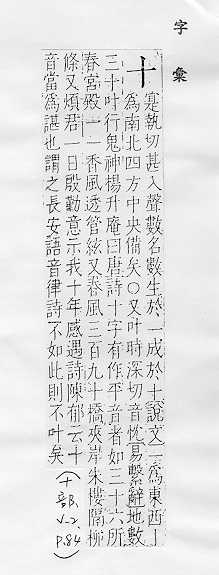 字彙
十 寔執切甚入聲數名數生於一成於十說文一為東西丨
為南北四方中央備矣○又叶時深切音忱易繫辭地數
三十叶行鬼神楊升庵曰唐詩十字有作平音者如三十六所
春宮殿一一香風透管絃又春風三百九十橋夾岸朱樓隔柳
條又煩君一日殷勤意示我十年感遇詩陳郁云十
音當為諶也謂之長安語音律詩不如此則不叶矣
(十部, V.2, P.84)